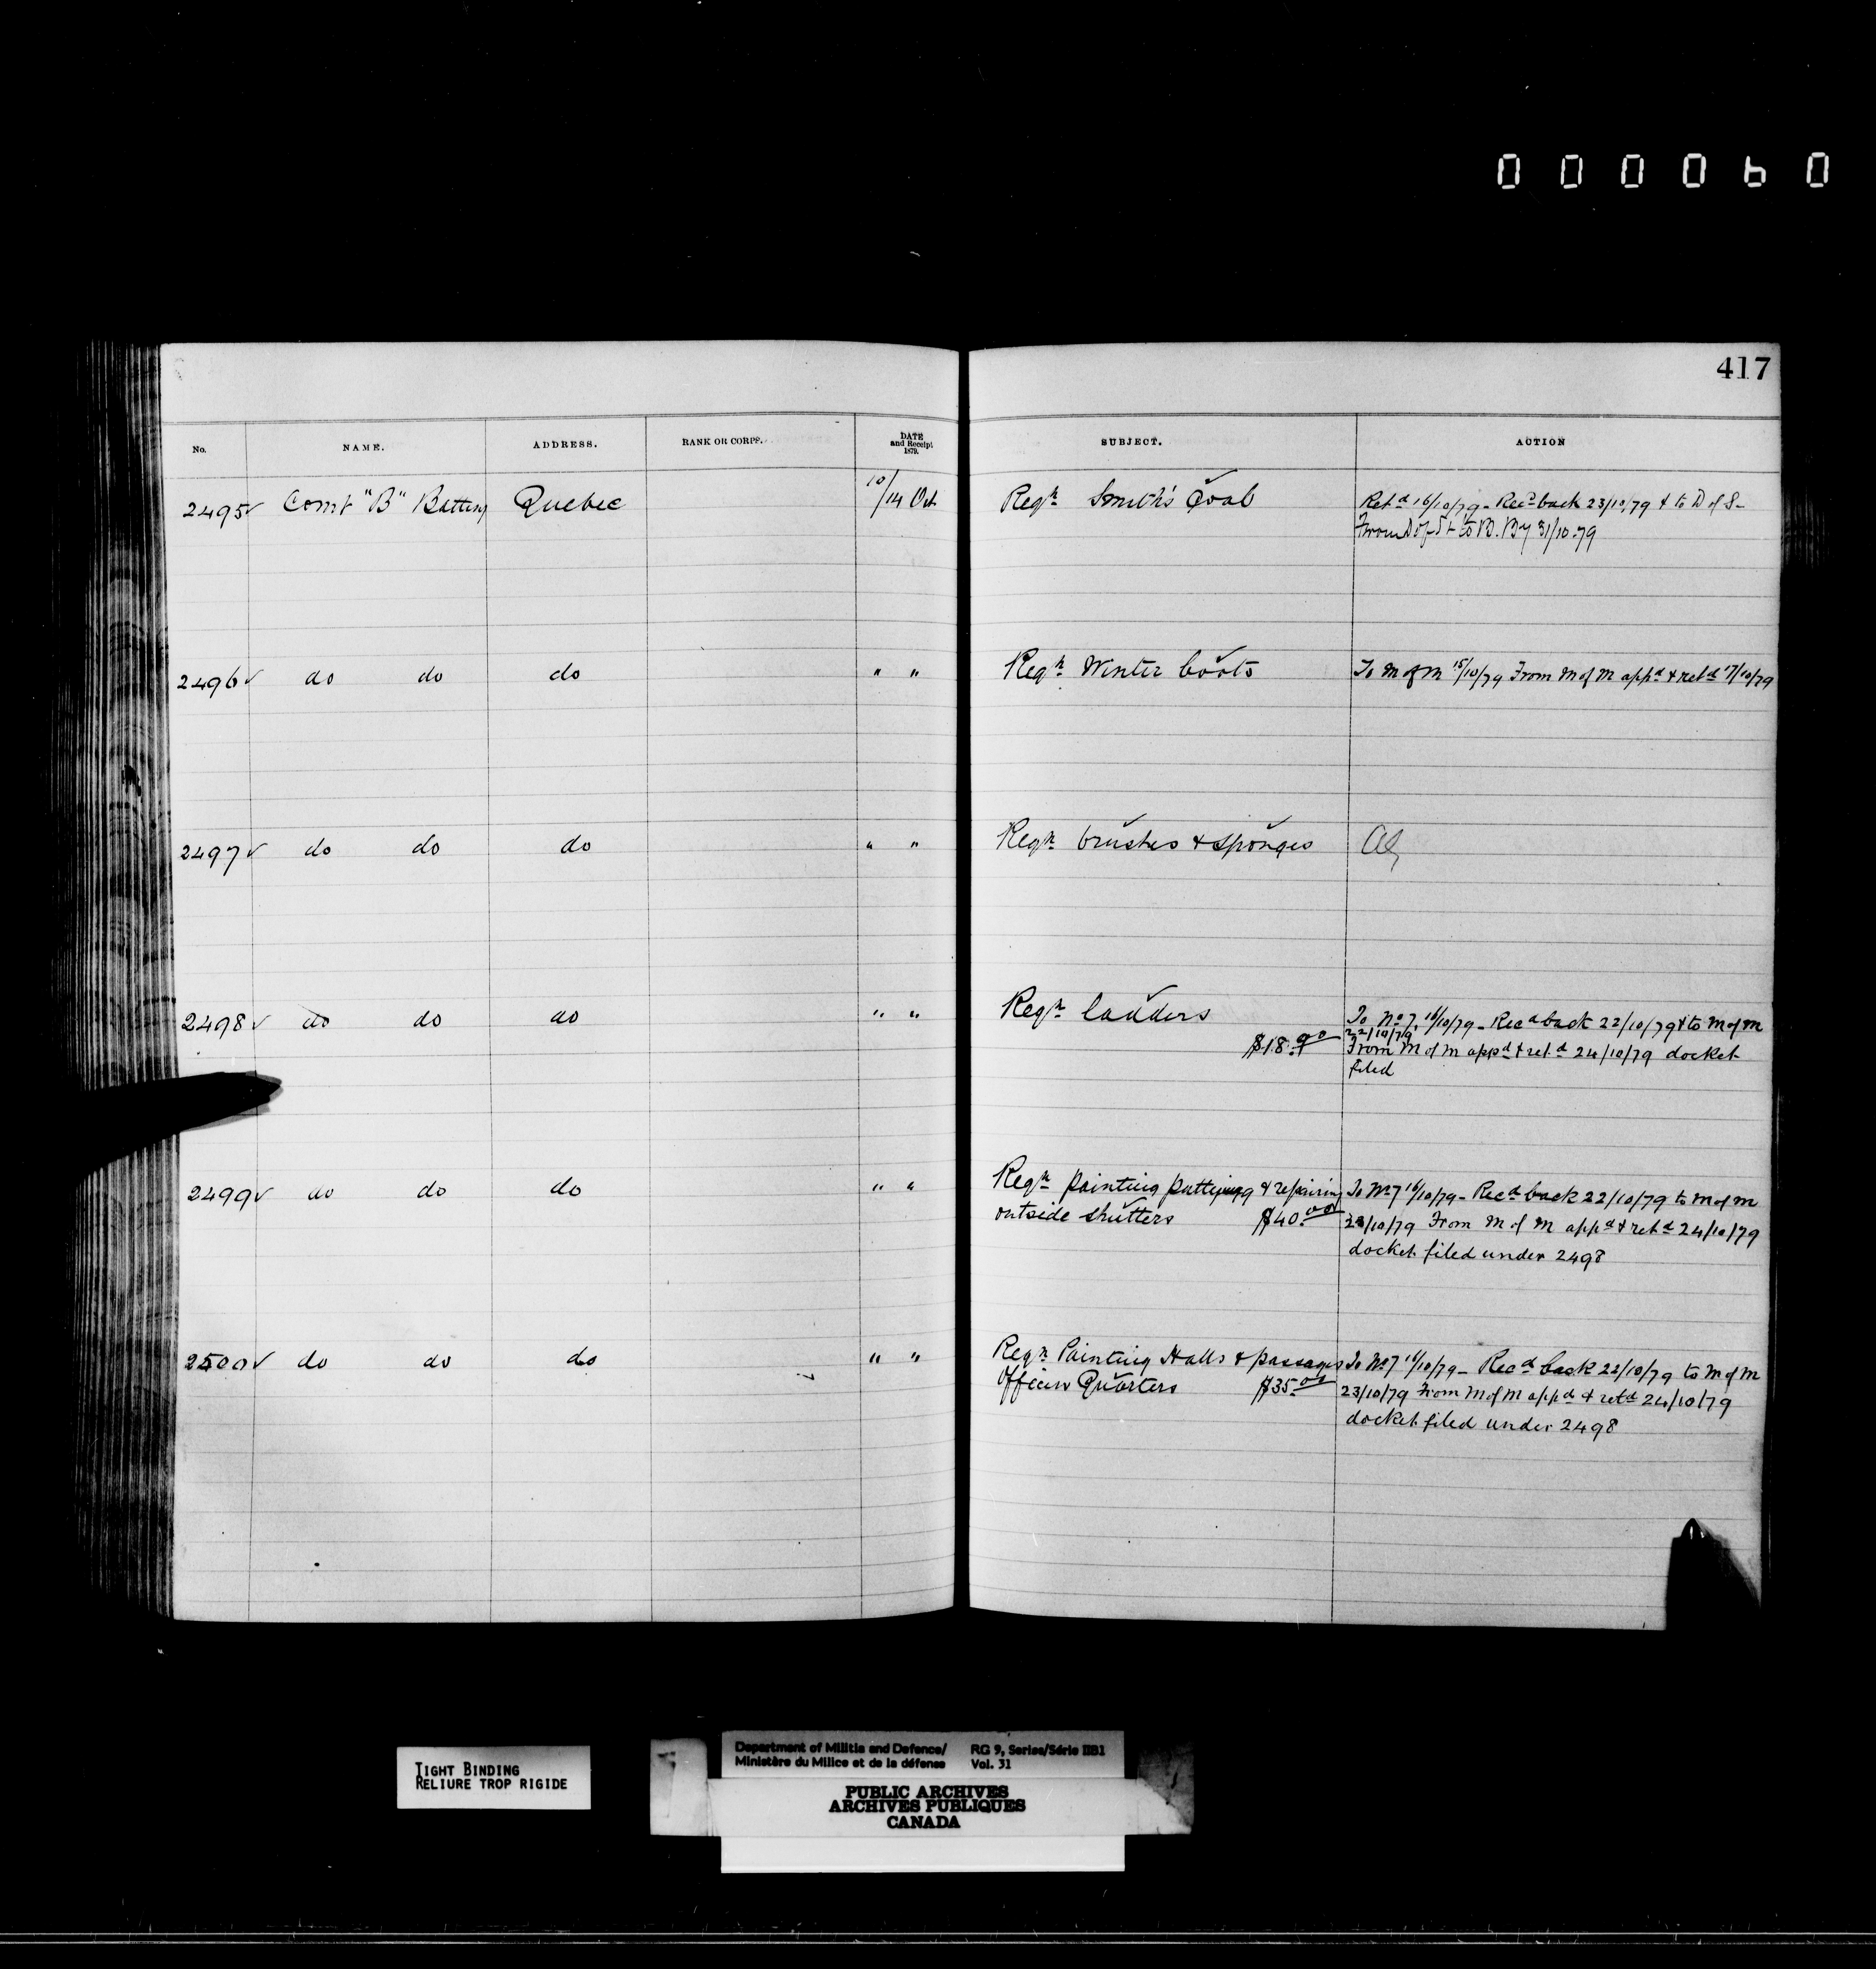 000060
417
No. NAME. ADDRESS. RANK OR CORPS. DATE and Receipt 1879. SUBJECT. ACTION
2495✓ Comt "B" Battery Quebec 10/14 Oct. Reqn Smith's Coal Retd 16/10/79 - Recd back 23/10/79 & to D of S -
From D of St to B. By 31/10.79
2496✓ do do do " " Reqn Winter boots To M of M 15/10/79 From M of M appd & retd 17/10/79
2497✓ do do do " " Reqn brushes & sponges
2498✓ do do do " " Reqn ladders To No 7, 16/10/79 - Recd back 22/10/79 & to M of M
22/10/79
$18.00 From M of M appd & retd 24/10/79 docket
filed
2499✓ do do do " " Reqn painting puttying & repairing To No 7 16/10/79 - Recd back 22/10/79 to M of M
outside shutters $40.00 23/10/79 From M of M appd & retd 24/10/79
docket filed under 2498
2500✓ do do do " " Reqn Painting Halls & passages To No 7 16/10/79 - Recd back 22/10/79 to M of M
Officers Quarters $35.00 23/10/79 From M of M appd & retd 24/10/79
docket filed under 2498
TIGHT BINDING
RELIURE TROP RIGIDE
Department of Militia and Defence/ RG 9, Series/Série IIB1
Ministère du Milice et de la défense Vol. 31
PUBLIC ARCHIVES
ARCHIVES PUBLIQUES
CANADA